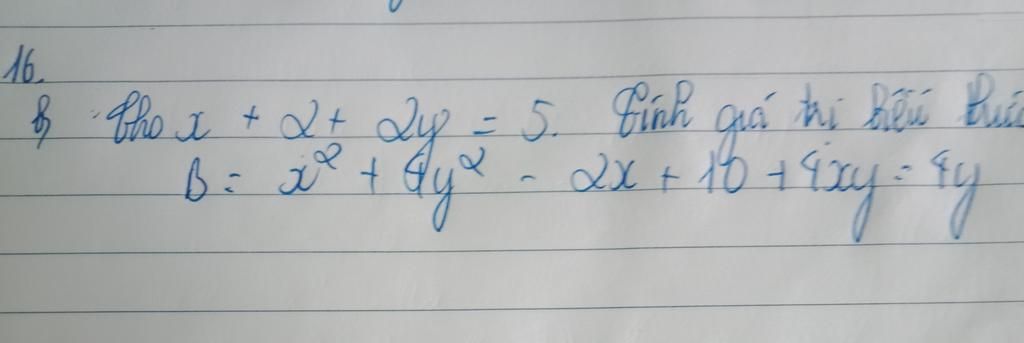 16.
b, Cho x + 2 + 2y = 5. Tính giá trị biểu thức
B = x² + 4y² - 2x + 10 + 4xy - 4y